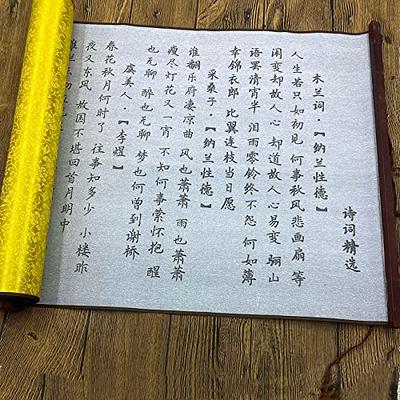 诗词精选
木兰词·【纳兰性德】
人生若只如初见 何事秋风悲画扇 等
闲变却故人心 却道故人心易变 骊山
语罢清宵半 泪雨零铃终不怨 何如薄
幸锦衣郎 比翼连枝当日愿
采桑子·【纳兰性德】
谁翻乐府凄凉曲 风也萧萧 雨也萧萧
瘦尽灯花又一宵 不知何事萦怀抱 醒
也无聊 醉也无聊 梦也何曾到谢桥
虞美人·【李煜】
春花秋月何时了 往事知多少 小楼昨
夜又东风 故国不堪回首月明中
雕兰